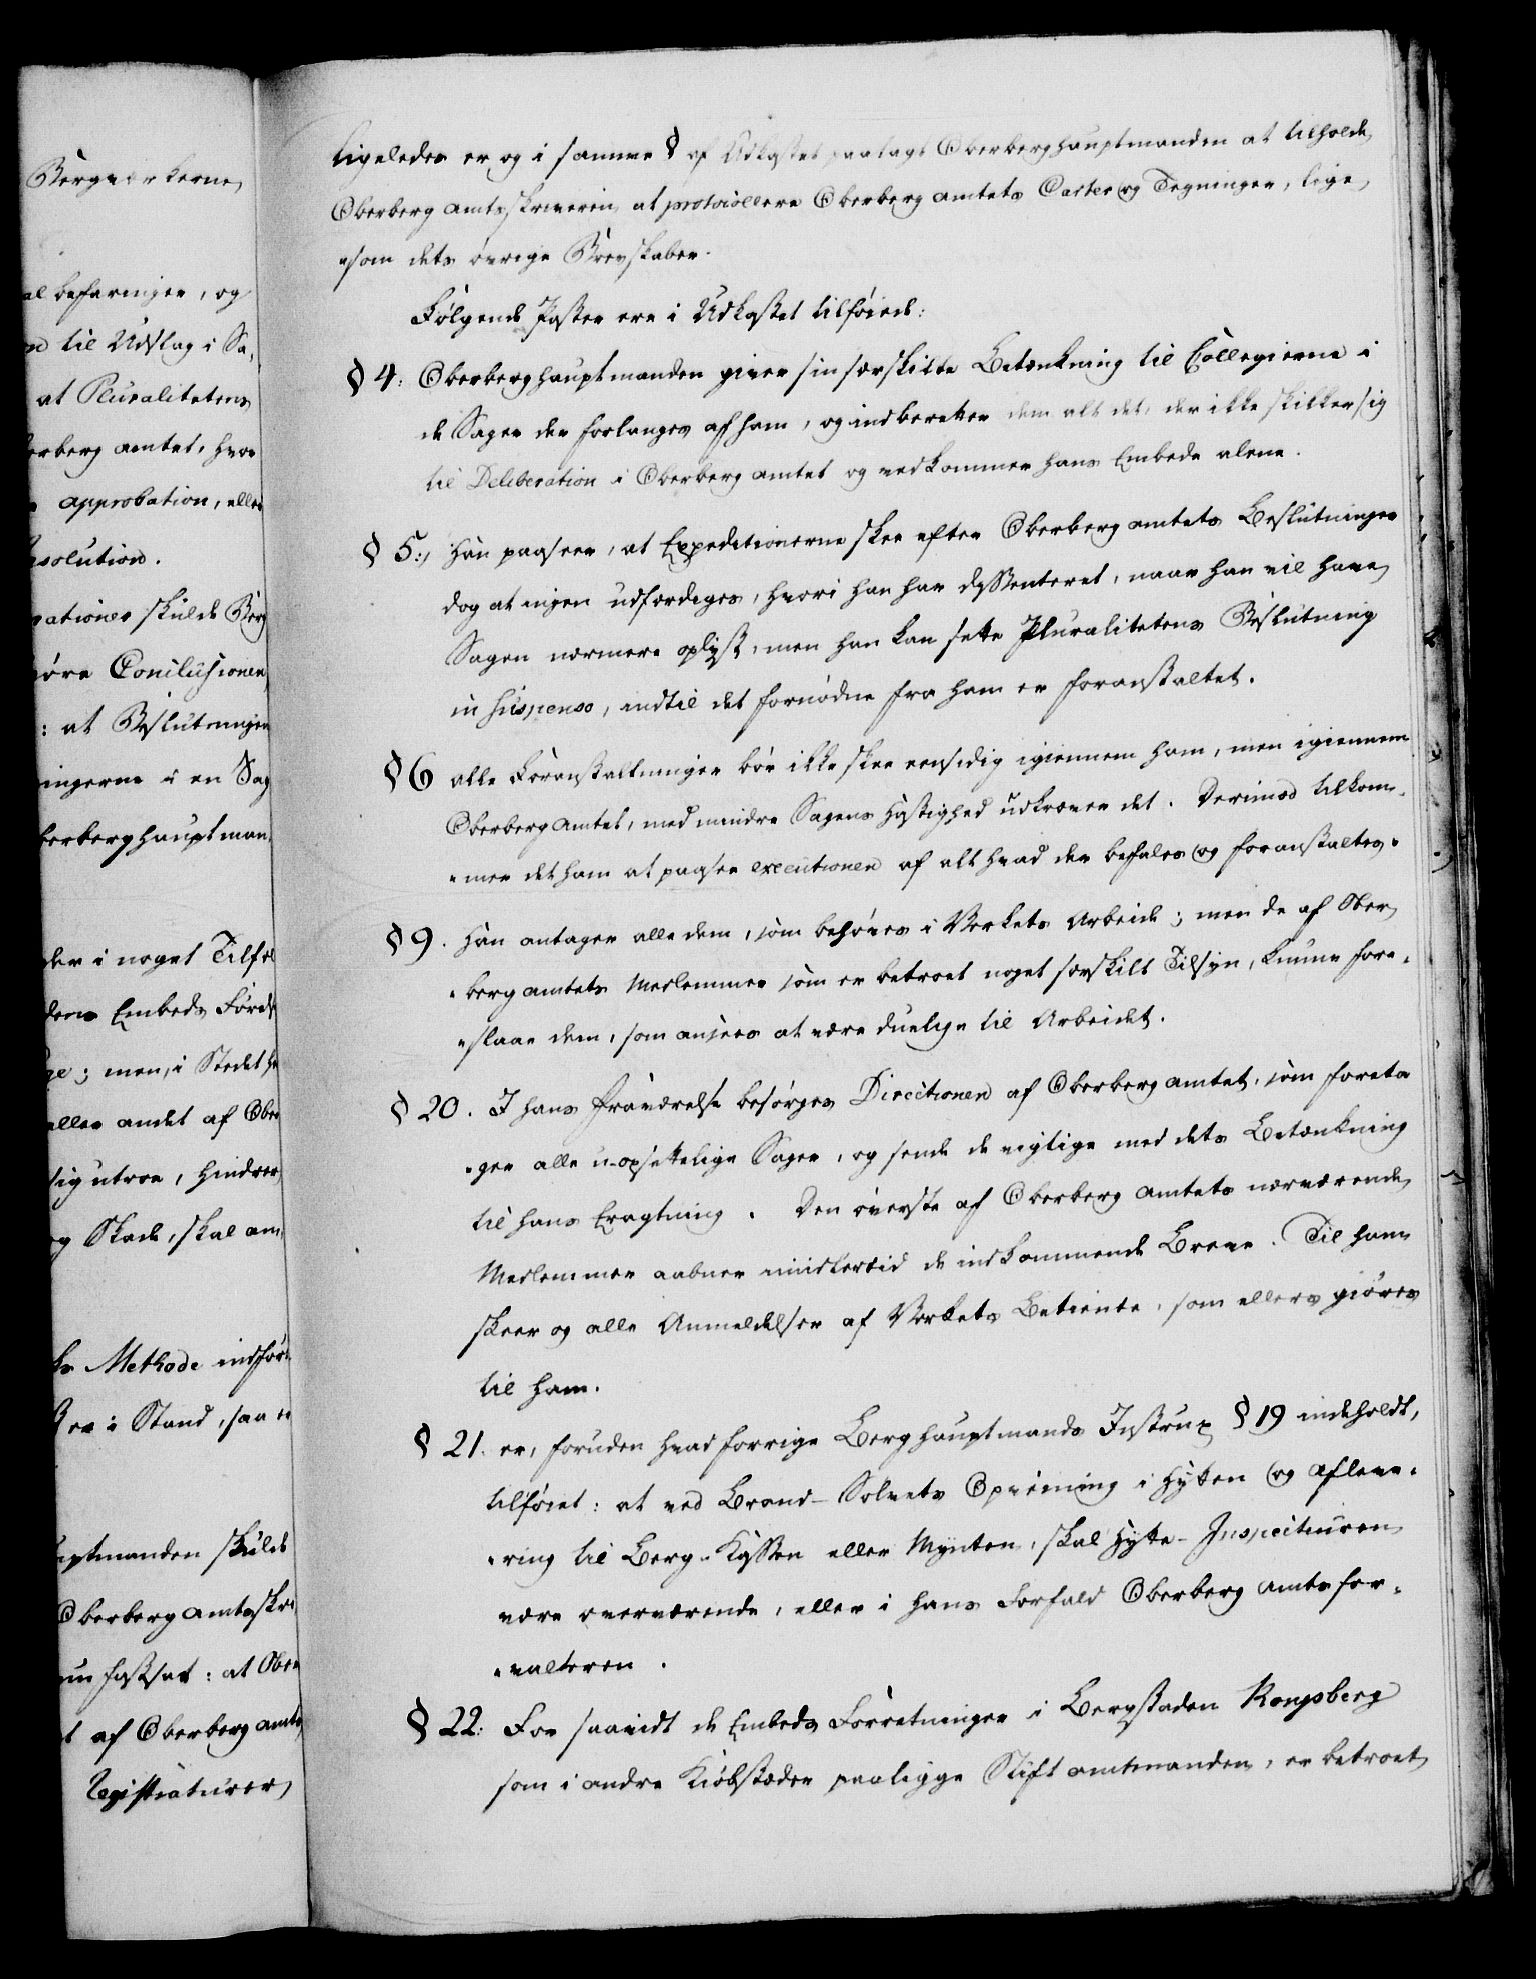 Bergværkerne
al befaringer, og
n til Udslag i Sa,
at Pluralitetens
erberg amtet, hvor
approbation, eller
esolution.
rationer skulde Berg
giøre Conclusionen
: at Beslutninger
ingerne i en Sag
berberghauptman,
der i noget Tilfæ
dens Embeds Førels
ge; men, i Stedet h
eller andet af Ober
sig utroe, hindrer
og Skade, skal am,
ks Methode indfør
re i Stand, saa er
uptmanden skulde
Oberbergamtsskri,
nu fastsat: at Ober
t af Oberberg amts
Registraturer
ligeledes er og i samme § af Udkastet paalagt Oberberghauptmanden at tilholde
Oberberg amtsskriveren at protocollere Oberberg amtets Carter og Tegninger, lige
"som dets øvrige Brevskaber.
Følgende Poster ere i Udkastet tilføiede:
§ 4: Oberberghauptmanden giver sin særskilte Betænkning til Collegierne i
de Sager der forlanges af ham, og indberetter dem alt det, der ikke skikker sig
til Deliberation i Oberberg amtet og vedkommer hans Embede alene.
§ 5:, Han paaseer, at Expeditionerne skee efter Oberberg amtets Beslutninger
dog at ingen udfærdiges, hvori han har dissenteret, naar han vil have
Sagen nærmere oplyst, men han kan sette Pluralitetens Beslutning
in suspenso, indtil det fornødne fra ham er foranstaltet.
§ 6 alle Foranstaltninger bør ikke skee eensidig igiennem ham, men igiennem
Oberberg amtet, med mindre Sagens Hastighed udkræver det. Derimod tilkom-
"mer det ham at paasee executionen af alt hvad der befales og foranstaltes.
§ 9. Han antager alle dem, som behøves i Verkets Arbeide; men de af Ober
"berg amtets Medlemmer som er betroet noget særskilt Tilsyn, kunne fore-
"slaae dem, som ansees at være duelige til Arbeidet.
§ 20. I hans fraværelse besørges Directionen af Oberberg amtet, som foreta
"ger alle u-opsettelige Sager, og sende de vigtige med dets Betænkning
til hans Eragtning. Den øverste af Oberberg amtets nærværende
Medlemmer aabner imidlertid de indkommende Breve. Til ham
skeer og alle Anmeldelser af Verkets Betiente, som ellers giøres
til ham.
§ 21. er, foruden hvad forrige Berghauptmands Instrux § 19 indeholdt,
tilføiet: at ved Brand-Sølvets Opveining i Hytten og aflеve-
"ring til Berg-Kassen eller Mynten, skal Hytte-Inspecteuren
være overværende, eller i hans Forfald Oberberg amtsfor-
"valteren.
§ 22: For saavidt de Embeds Forretninger i Bergstaden Kongsberg
som i andre Kiøbstæder paaligge Stiftamtmanden, er betroet